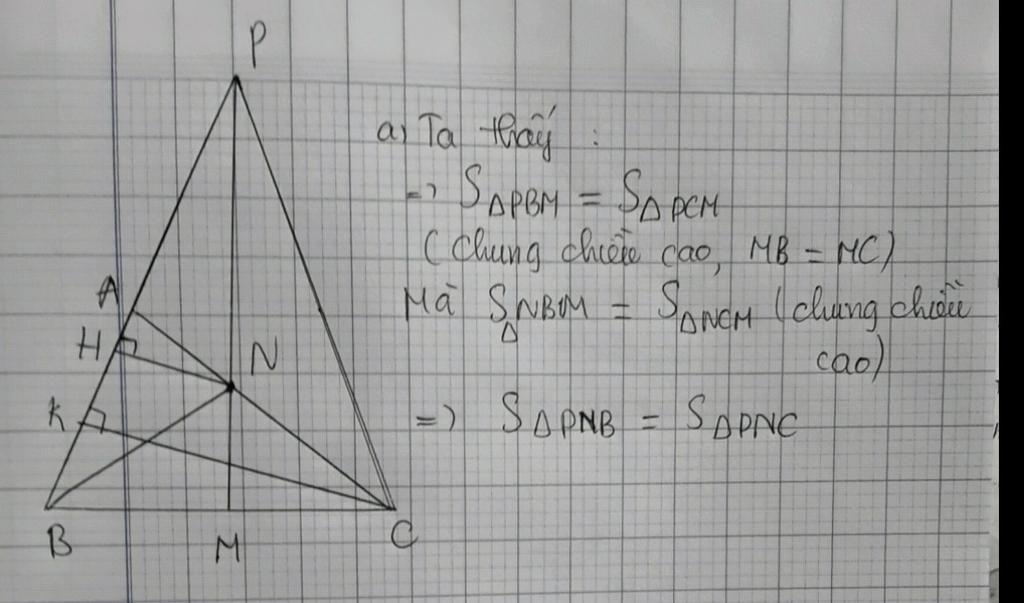 P
a) Ta thấy :
=> SΔPBM = SΔPCM
(Chung chiều cao, MB = MC)
A
Mà SΔNBM = SΔNCM (chung chiều
H
N
cao)
K
=> SΔPNB = SΔPNC
B
M
C